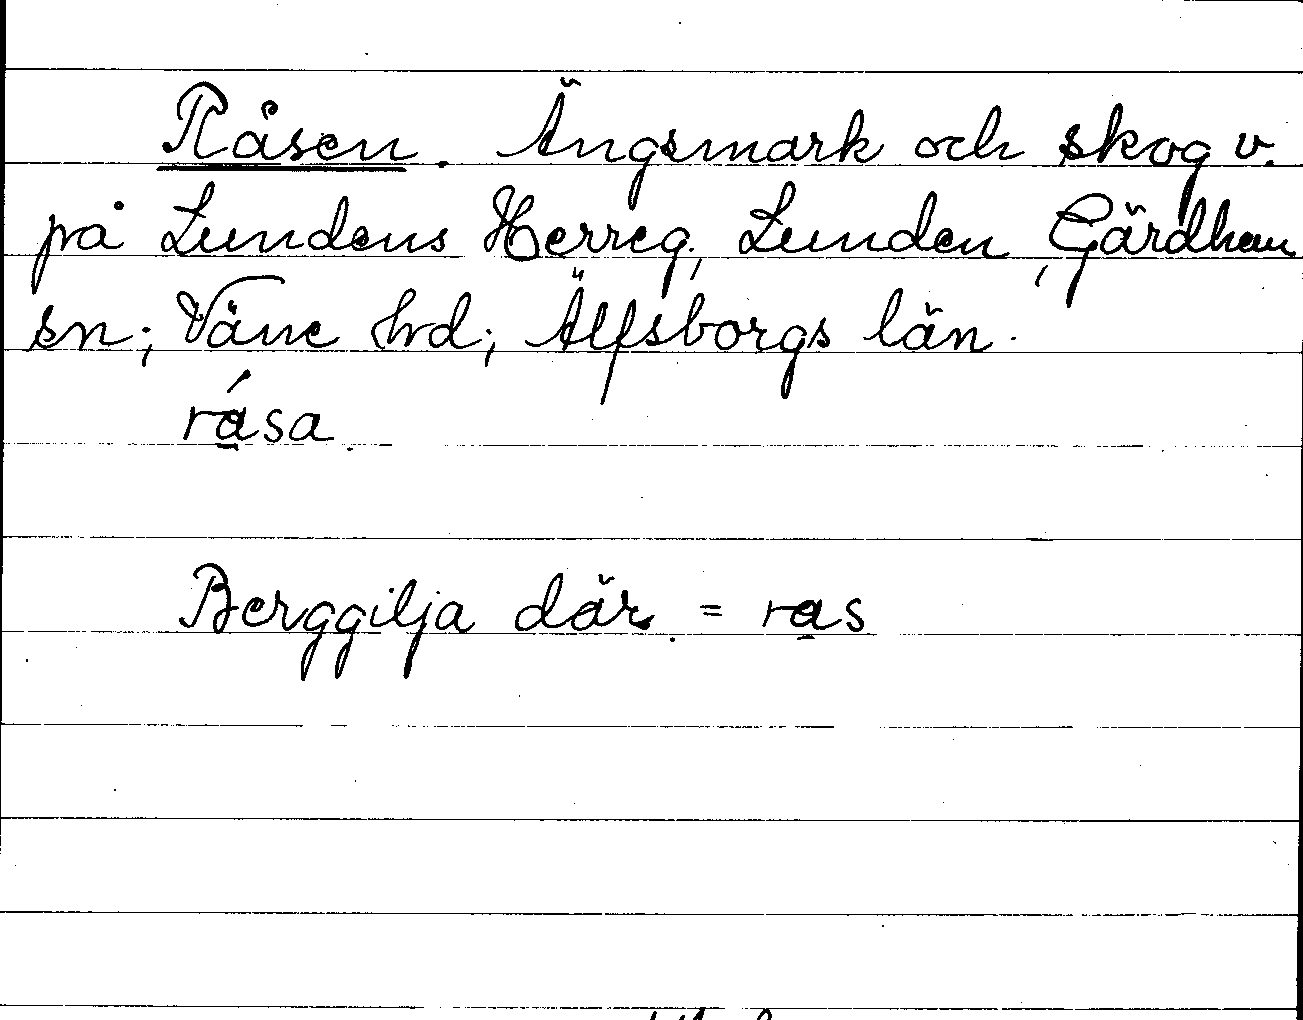 Råsen. Ängsmark och skog v.
på Lundens Herreg., Lunden, Gärdhem
sn; Väne hd; Älfsborgs län.
rása.
Berggilja där. = ras